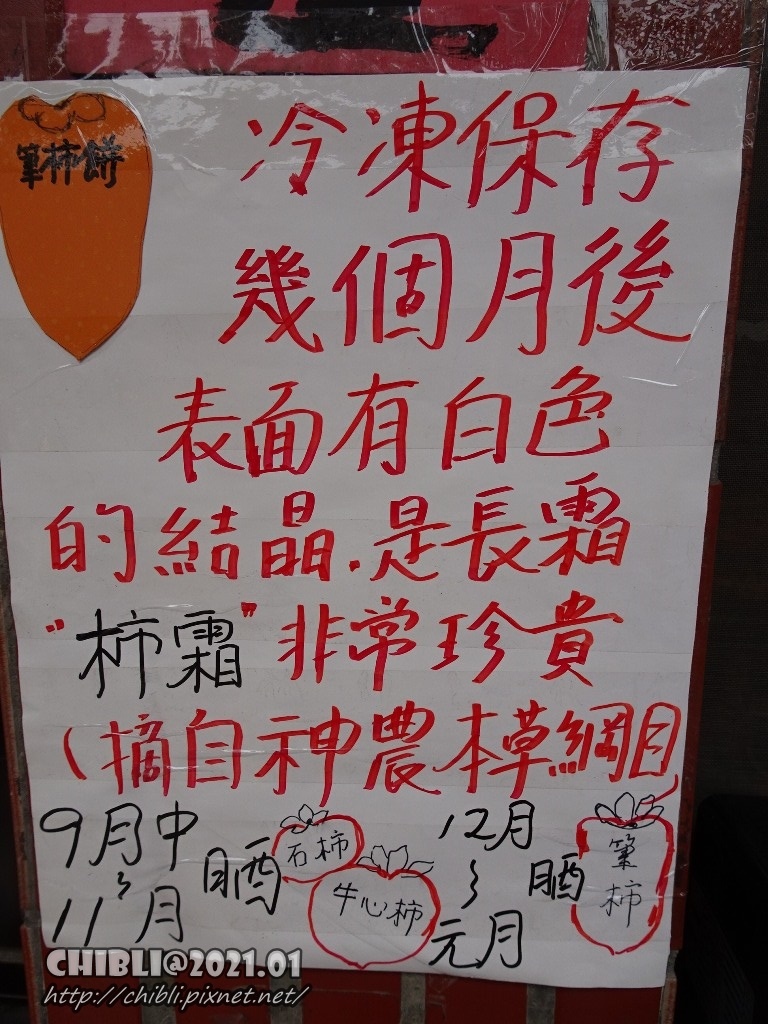 筆柿餅
冷凍保存
幾個月後
表面有白色
的結晶.是長霜
"柿霜"非常珍貴
(摘自神農本草綱目)
9月中
~
11月
晒
石柿
牛心柿
12月
~
元月
晒
筆柿
CHIBLI@2021.01
http://chibli.pixnet.net/